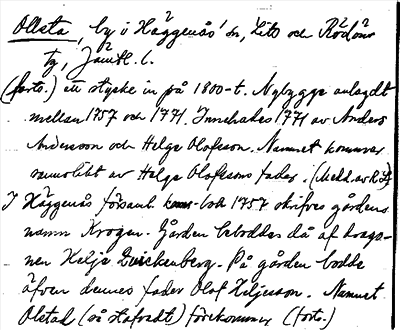 Ollsta, by i Häggenås' sn, Lits och Rödöns
tg, Jämtl. l.
(forts.) ett stycke in på 1800-t. Nybygge anlagdt
mellan 1757 och 1771. Innehades 1771 av Anders
Andersson och Helge Olofsson. Namnet kommer
sannolikt av Helge Olofssons fader. (Medd. av R.L.)
I Häggenås församl. kom-bok 1757 skrifves gårdens
namn Krogen. Gården beboddes då af drago-
nen Helje Quickenberg. På gården bodde
äfven dennes fader Olof Heljesson. Namnet
Olstad (så stafvadt) förekommer (forts.)